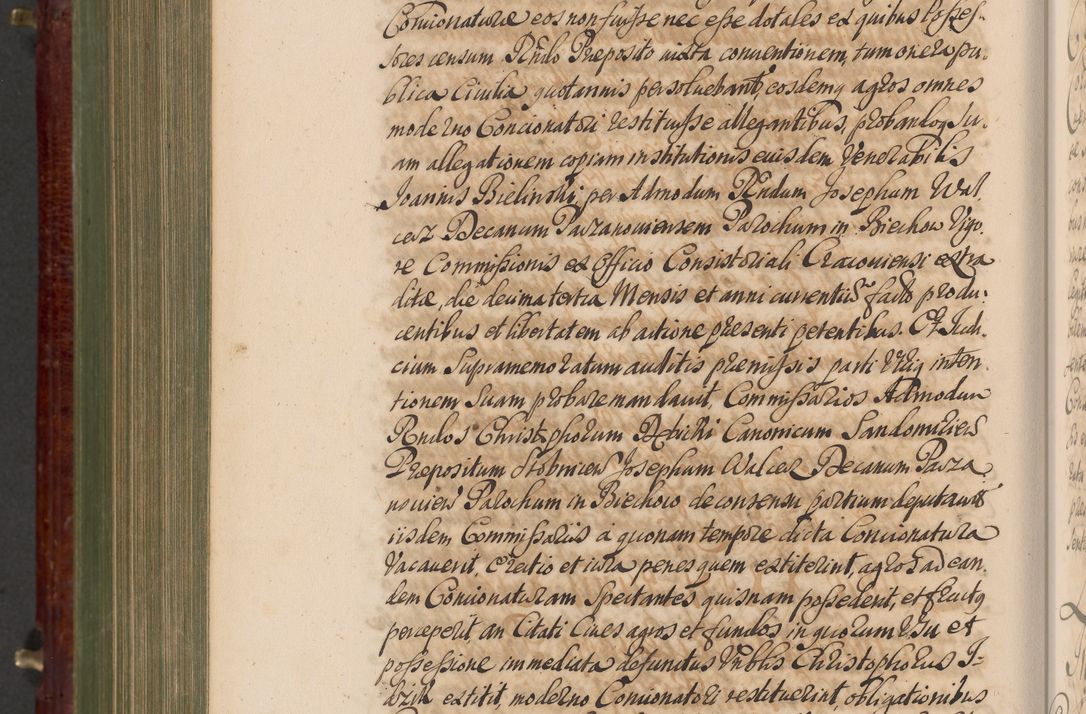 Concionaturæ eos non fuisse nec esse dotales ex quibus Posses-
sores censum Rndo Preposito iuxta conventionem, tum onera pu-
blica Civilia quotannis persoluebant, eosdemq agros omnes
moderno Concionatori restituisse allegantibus, probandoq Su-
am allegationem copiam institutionis eiusdem Venerabilis
Joannis Bielinski per Admodum Rndum Josephum Wal
cer Decanum Pacanoviensem Parochum in Biechow Vigo
re Commissionis ex Officio Consistoriali Cracoviensi extra
ditæ, die decima tertia Mensis et anni currentis facto produ-
centibus et libertatem ab actione presenti petentibus. Et Judi-
cium Supramemoratum auditis premissis parti Utriq inten
tionem Suam probare mandavit, Commissarios Admodum
Rndos Christophorum Canonicum Sandomiriens
Prepositum Stobnicens Josephum Walcer Decanum Pacza
noviens Parochum in Biechow de consensu partium deputavit
iisdem Commissariis a quonam tempore dicta Concionatura
Vacaverit, erectio et iura penes quem extiterint, agros ad ean
dem Concionaturam Spectantes quisnam possederit, et fructq
perceperit an Citati Cives agros et fundos in quorum Usu et
possessione immediata defunctus Vnblis Christophorus
extitit, moderno Concionatori restituerint, obligationibus